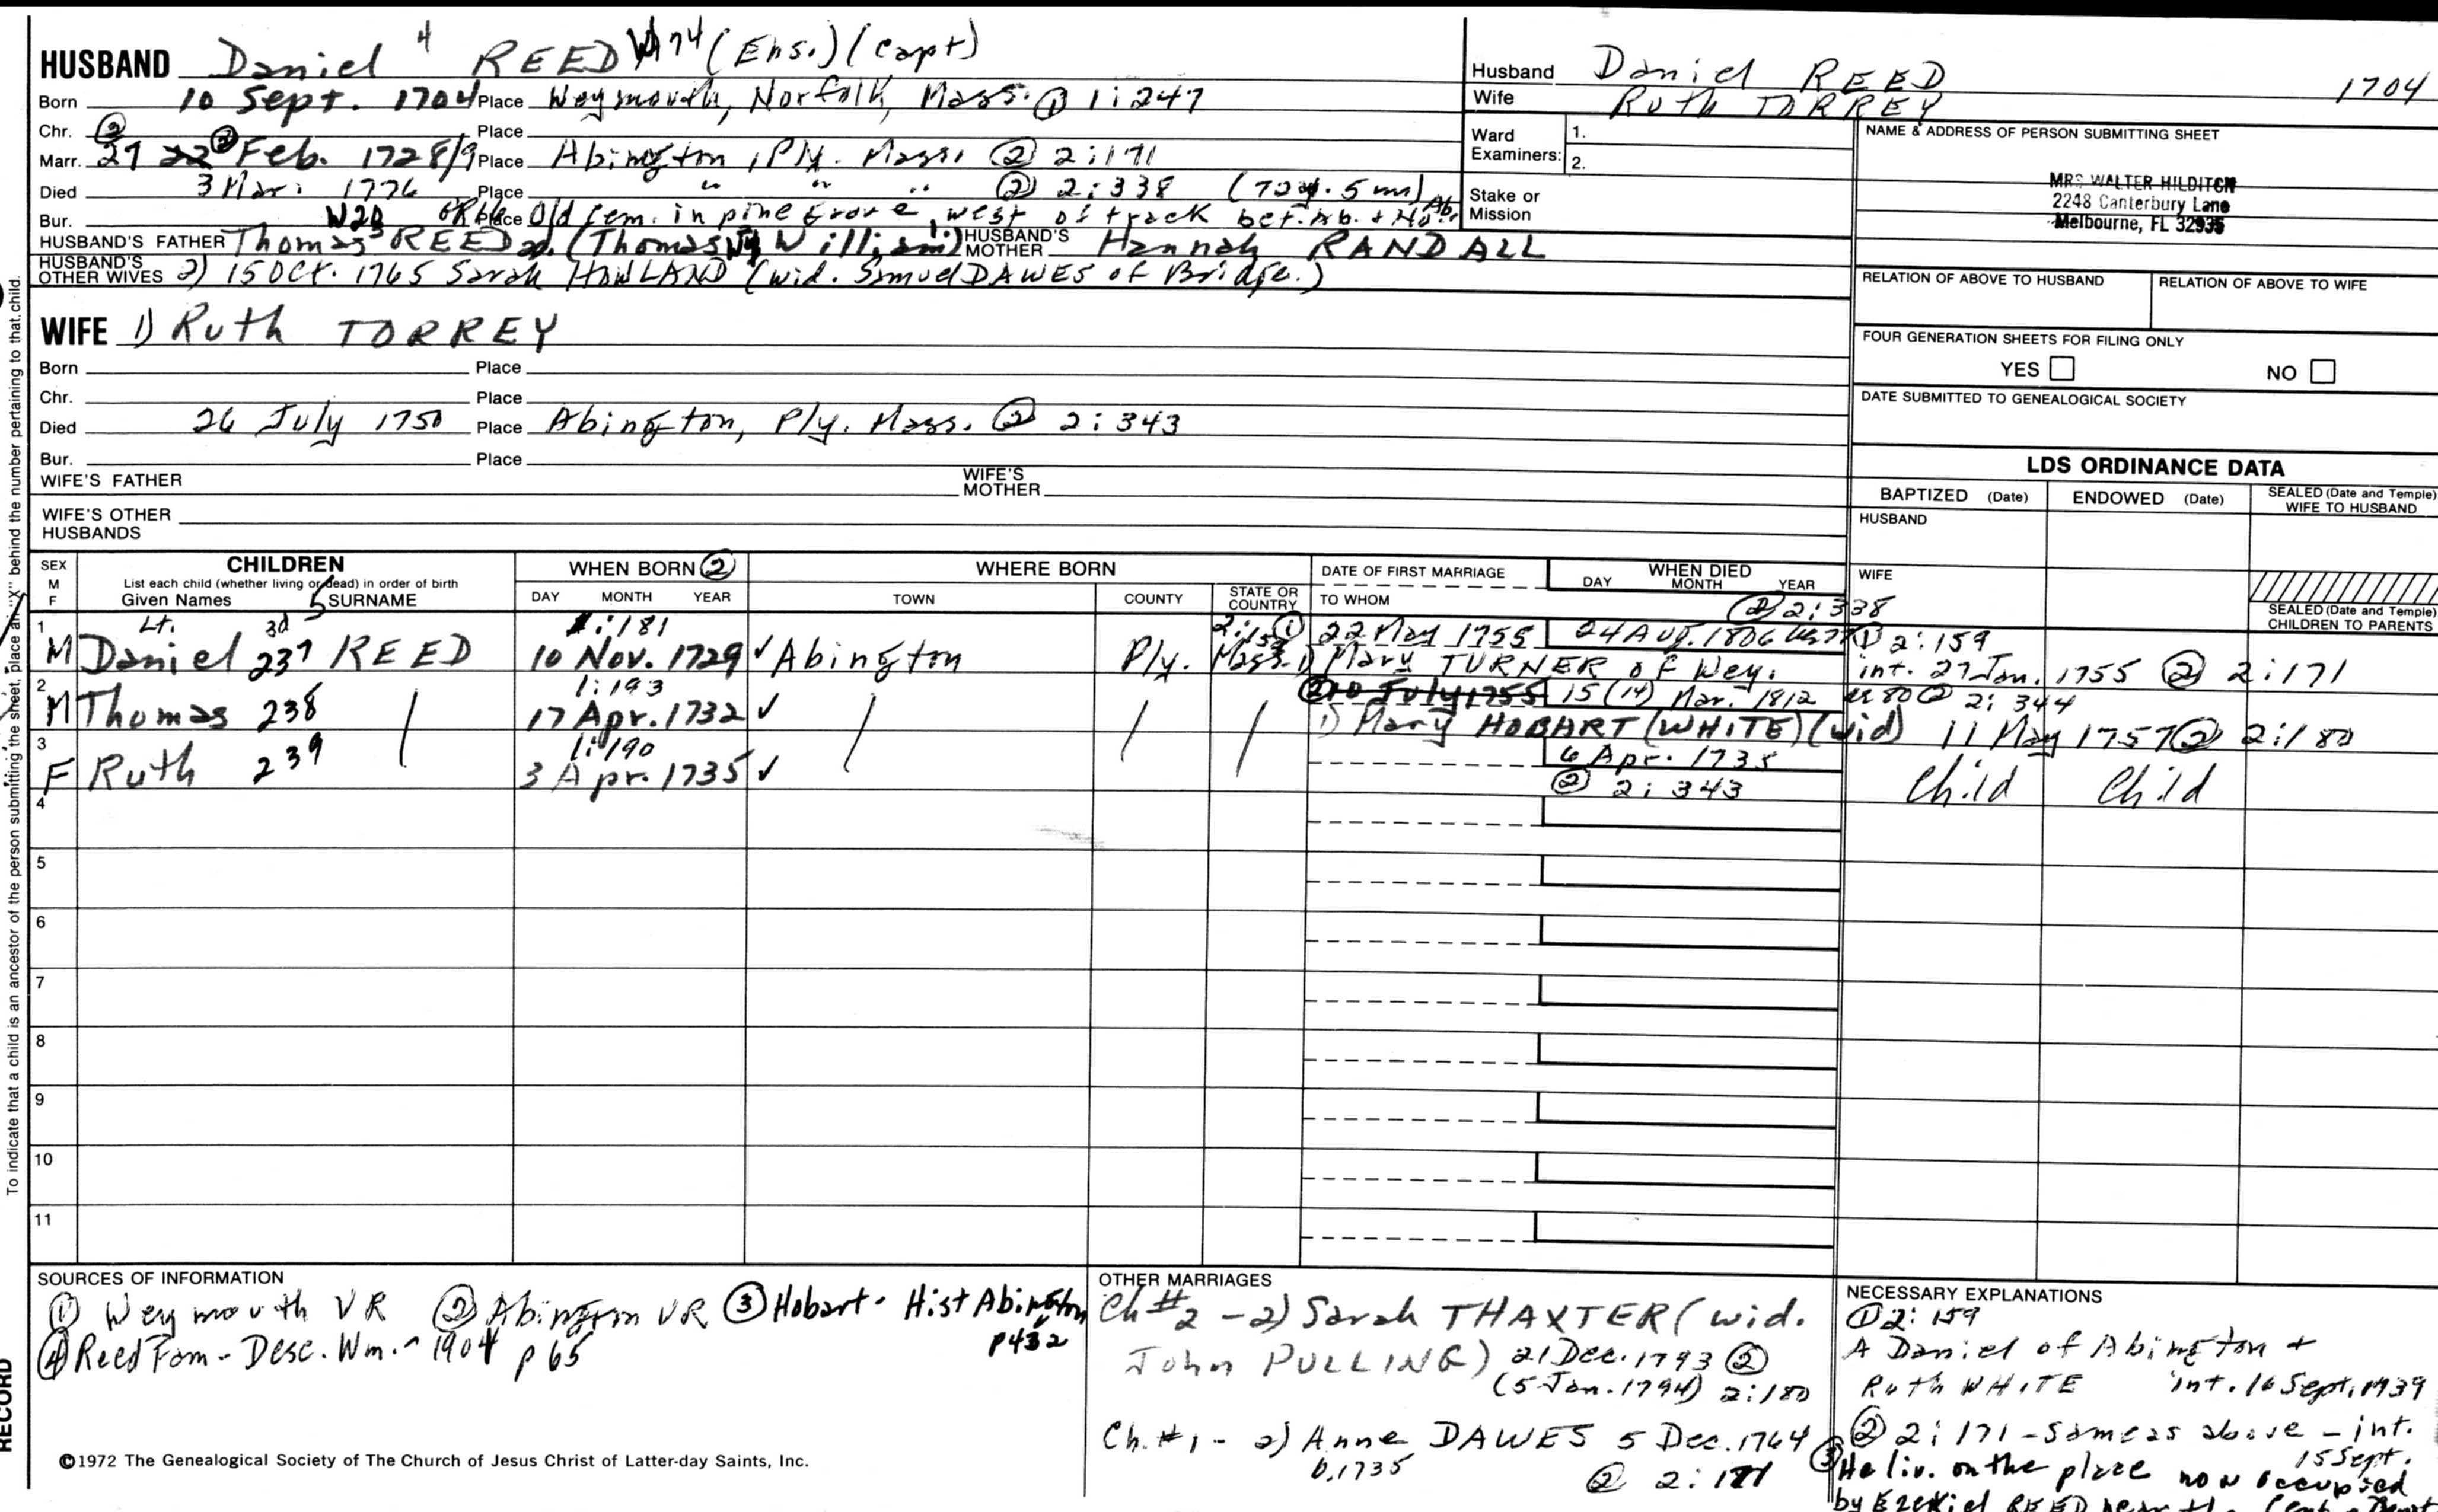 HUSBAND Daniel 4 REED (Ens.) (Capt)
Born 10 Sept. 1704 Place Weymouth, Norfolk, Mass. ① 1:247
Chr. ② Place
Marr. 27 22 ② Feb. 1728/9 Place Abington, Ply. Mass. ② 2:171
Died 3 Mar. 1776 Place " " " ② 2:338 (72y. 5 m)
Bur. Place Old Cem. in pine grove, west of track bet. Ab. + No. Ab.
HUSBAND'S FATHER Thomas 3 REED (Thomas William 1.) HUSBAND'S MOTHER Hannah RANDALL
HUSBAND'S OTHER WIVES 2) 15 Oct. 1765 Sarah HOWLAND (wid. Samuel DAWES of Bridge.)
WIFE 1) Ruth TORREY
Born Place
Chr. Place
Died 26 July 1750 Place Abington, Ply. Mass. ② 2:343
Bur. Place
WIFE'S FATHER WIFE'S MOTHER
WIFE'S OTHER HUSBANDS
Husband Daniel REED 1704
Wife Ruth TORREY
Ward Examiners: 1.
2.
Stake or Mission
NAME & ADDRESS OF PERSON SUBMITTING SHEET
MRS WALTER HILDITCH
2248 Canterbury Lane
Melbourne, FL 32935
RELATION OF ABOVE TO HUSBAND RELATION OF ABOVE TO WIFE
FOUR GENERATION SHEETS FOR FILING ONLY
YES NO
DATE SUBMITTED TO GENEALOGICAL SOCIETY
LDS ORDINANCE DATA
BAPTIZED (Date) ENDOWED (Date) SEALED (Date and Temple) WIFE TO HUSBAND
HUSBAND
WIFE
SEALED (Date and Temple) CHILDREN TO PARENTS
SEX M F
CHILDREN
List each child (whether living or dead) in order of birth
Given Names 5 SURNAME
WHEN BORN ②
DAY MONTH YEAR
WHERE BORN
TOWN COUNTY STATE OR COUNTRY
DATE OF FIRST MARRIAGE
TO WHOM
WHEN DIED
DAY MONTH YEAR
② 2:338
1 Lt. 3d 1:181 22 May 1755 24 Aug. 1806 ① 2:159
M Daniel 237 REED 10 Nov. 1729 ✓ Abington Ply. Mass. 1) Mary TURNER of Wey. int. 27 Jan. 1755 ② 2:171
2 1:193 10 July 1755 15 (14) Mar. 1812 ae 80 ② 2:344
M Thomas 238 17 Apr. 1732 ✓ 1) Mary HOBART (WHITE) (wid) 11 May 1757 ② 2:180
3 1:190 6 Apr. 1735
F Ruth 239 3 Apr. 1735 ✓ ② 2:343 Child Child
4
5
6
7
8
9
10
11
SOURCES OF INFORMATION
① Weymouth VR ② Abington VR ③ Hobart - Hist Abington p432
④ Reed Fam - Desc. Wm. - 1904 p 65
©1972 The Genealogical Society of The Church of Jesus Christ of Latter-day Saints, Inc.
OTHER MARRIAGES
Ch #2 - 2) Sarah THAXTER (wid.
John PULLING) 21 Dec. 1793 ②
(5 Jan. 1794) 2:180
Ch. #1 - 2) Anne DAWES 5 Dec. 1764
b. 1735 ② 2:171
NECESSARY EXPLANATIONS
① 2:159
A Daniel of Abington +
Ruth WHITE int. 16 Sept. 1739
② 2:171 - same as above - int.
15 Sept.
③ He liv. on the place now occupied
by Ezekiel REED near the
To indicate that a child is an ancestor of the person submitting the sheet, place an "X" behind the number pertaining to that child.
RECORD